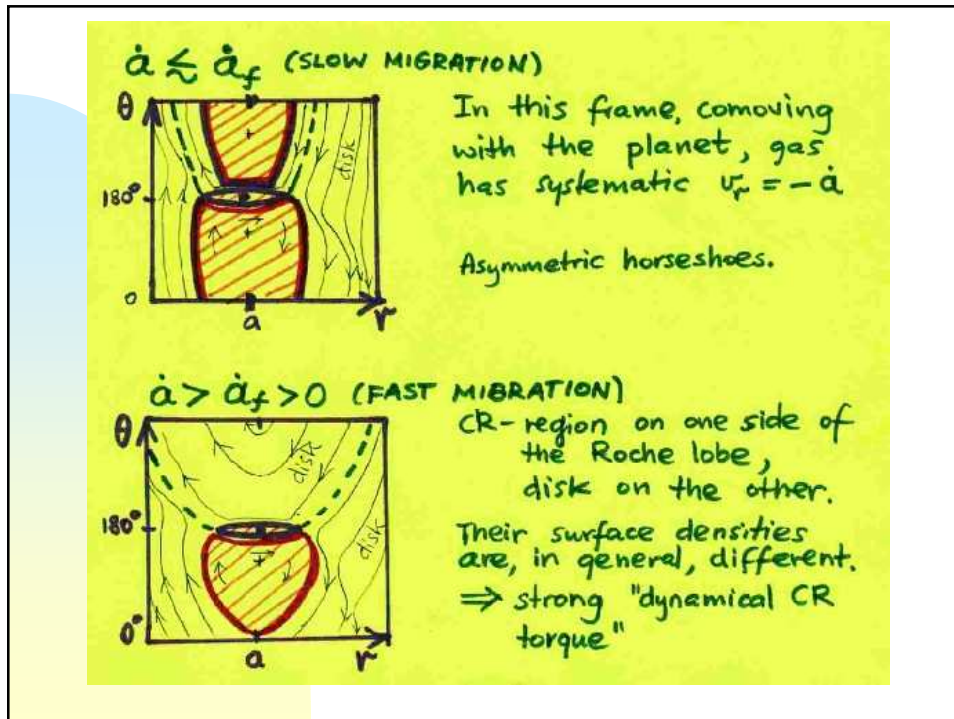 ȧ ≲ ȧ_f (SLOW MIGRATION)
θ
disk
180°
0
a
r
In this frame, comoving
with the planet, gas
has systematic v_r = -ȧ
Asymmetric horseshoes.
ȧ > ȧ_f > 0 (FAST MIGRATION)
θ
disk
disk
180°
0°
a
r
CR-region on one side of
the Roche lobe,
disk on the other.
Their surface densities
are, in general, different.
⇒ strong "dynamical CR
torque"